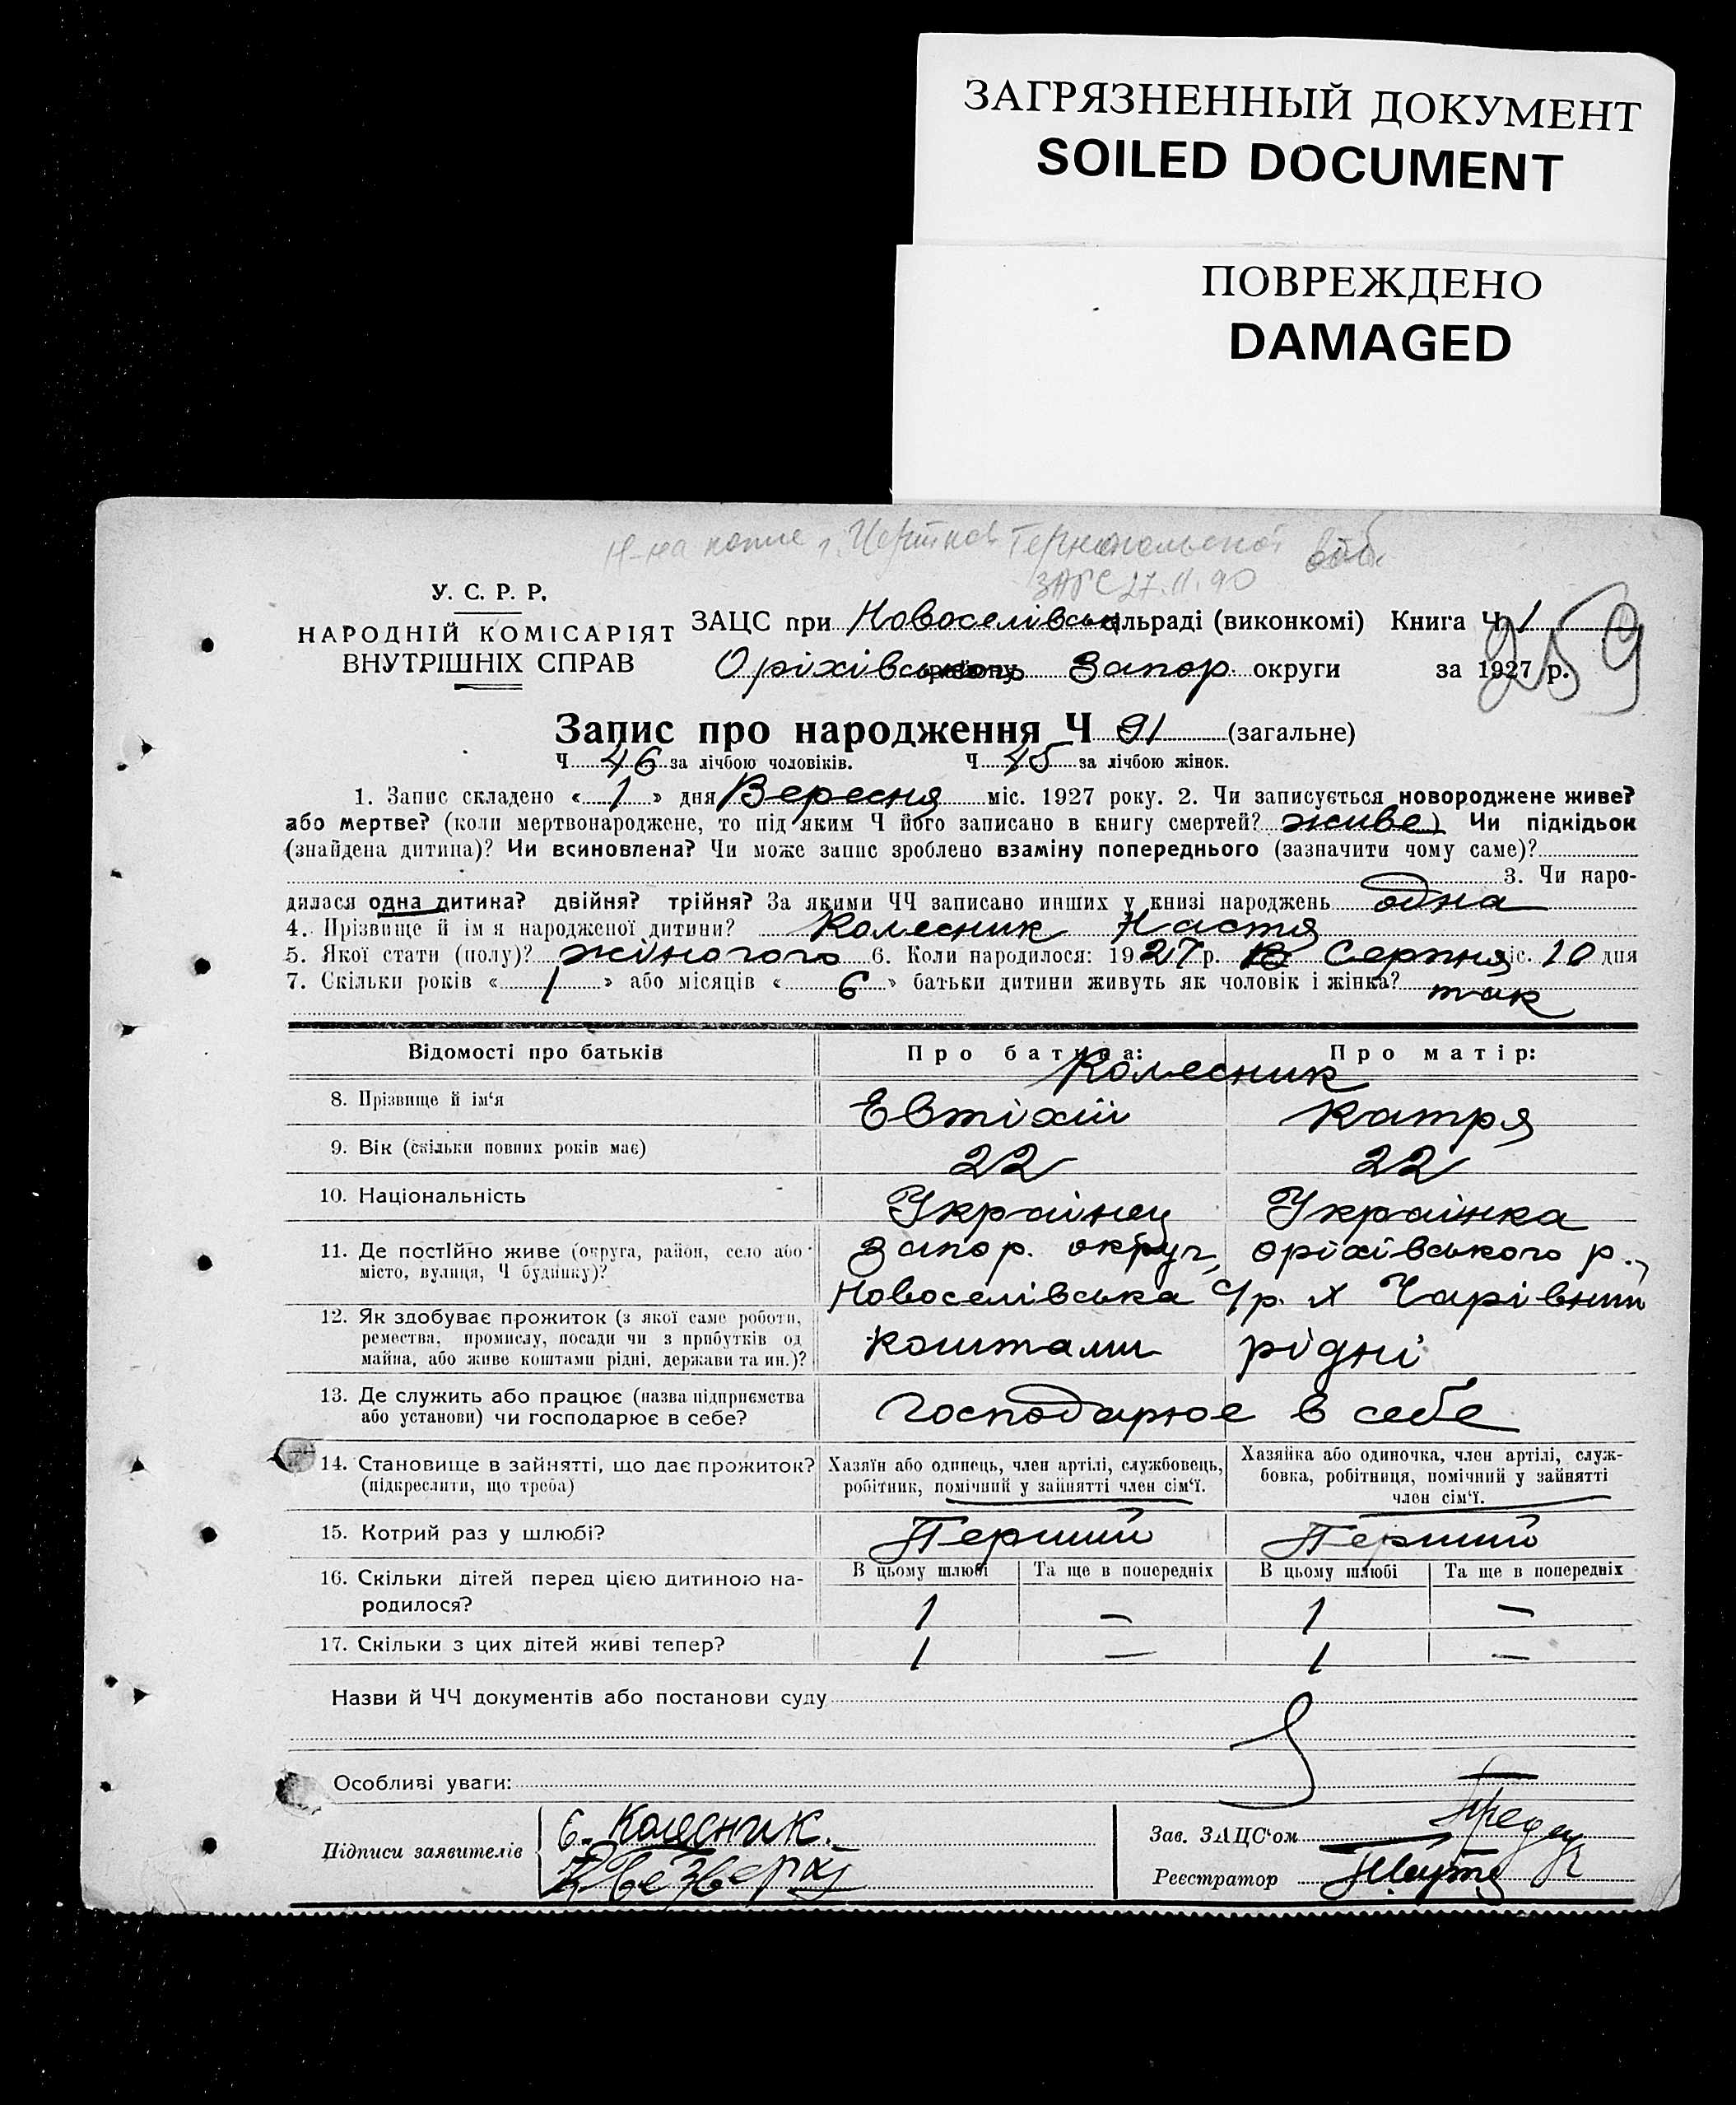 ЗАГРЯЗНЕННЫЙ ДОКУМЕНТ
SOILED DOCUMENT
ПОВРЕЖДЕНО
DAMAGED
г. Тернопольской обл.
ЗАГС 27.11.90
У. С. Р. Р.
НАРОДНІЙ КОМІСАРІЯТ
ВНУТРІШНІХ СПРАВ
ЗАЦС при Новоселівськ ільраді (виконкомі) Книга Ч. 1
Оріхівського району Запор округи за 1927 р.
259
Запис про народження Ч 91 (загальне)
Ч 46 за лічбою чоловіків. Ч 45 за лічбою жінок.
1. Запис складено « 1 » дня Вересня міс. 1927 року. 2. Чи записується новороджене живе?
або мертве? (коли мертвонароджене, то під яким Ч його записано в книгу смертей? живе) Чи підкідьок
(знайдена дитина)? Чи всиновлена? Чи може запис зроблено взаміну попереднього (зазначити чому саме)?
3. Чи наро-
дилася одна дитина? двійня? трійня? За якими ЧЧ записано инших у книзі народжень одна
4. Прізвище й ім я народженої дитини? Колесник Настя
5. Якої стати (полу)? жіночого 6. Коли народилося: 1927 р. Серпня міс. 10 дня
7. Скільки років « 1 » або місяців « 6 » батьки дитини живуть як чоловік і жінка? так
Відомості про батьків Про батька: Про матір:
Колесник
8. Прізвище й ім'я Евтіхій Катря
9. Вік (скільки повних років має) 22 22
10. Національність Українец Українка
11. Де постійно живе (округа, район, село або Запор. округ, Оріхівського р.,
місто, вулиця, Ч будинку)? Новоселівська с/р. х Чарівний
12. Як здобуває прожиток (з якої саме роботи,
ремества, промислу, посади чи з прибутків од
майна, або живе коштами рідні, держави та ин.)? коштами рідні
13. Де служить або працює (назва підприємства
або установи) чи господарює в себе? Господарює в себе
14. Становище в зайнятті, що дає прожиток?
(підкреслити, що треба)
Хазяїн або одинець, член артілі, службовець,
робітник, помічний у зайнятті член сім'ї.
Хазяйка або одиночка, член артілі, служ-
бовка, робітниця, помічний у зайнятті
член сім'ї.
15. Котрий раз у шлюбі? Перший Перший
16. Скільки дітей перед цією дитиною на-
родилося?
В цьому шлюбі Та ще в попередніх В цьому шлюбі Та ще в попередніх
1 — 1 —
17. Скільки з цих дітей живі тепер? 1 — 1 —
Назви й ЧЧ документів або постанови суду
Особливі уваги:
Підписи заявителів Є. Колесник.
Зав. ЗАЦС'ом
Реєстратор